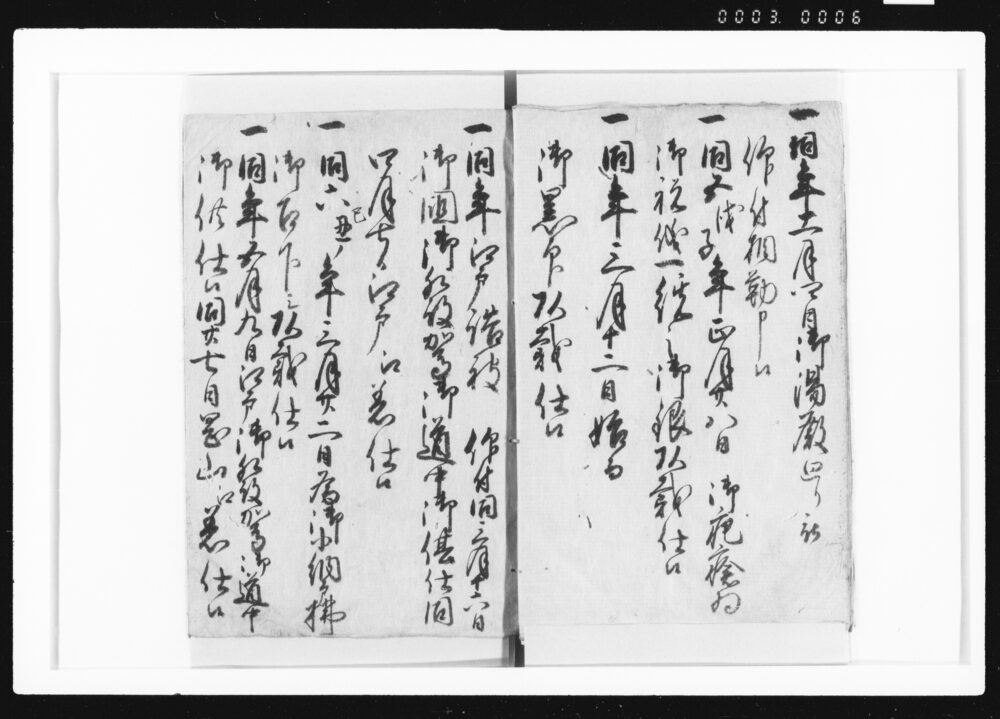 0003.0006
一同年十二月四日御湯殿
仰付相勤申候
一同五戊子年正月廿八日 御疱瘡
御祝儀一統 御銀頂戴仕候
一同年三月十二日始
御墨印頂戴仕候
一同年江戸詰被 仰付同三月十六日
御国御発駕御道中御供仕同
四月 江戸江着仕候
一同六己丑年三月廿二日為御
御召下シ頂戴仕候
一同年五月九日江戸御発駕御道中
御供仕候同廿七日岡山江着仕候